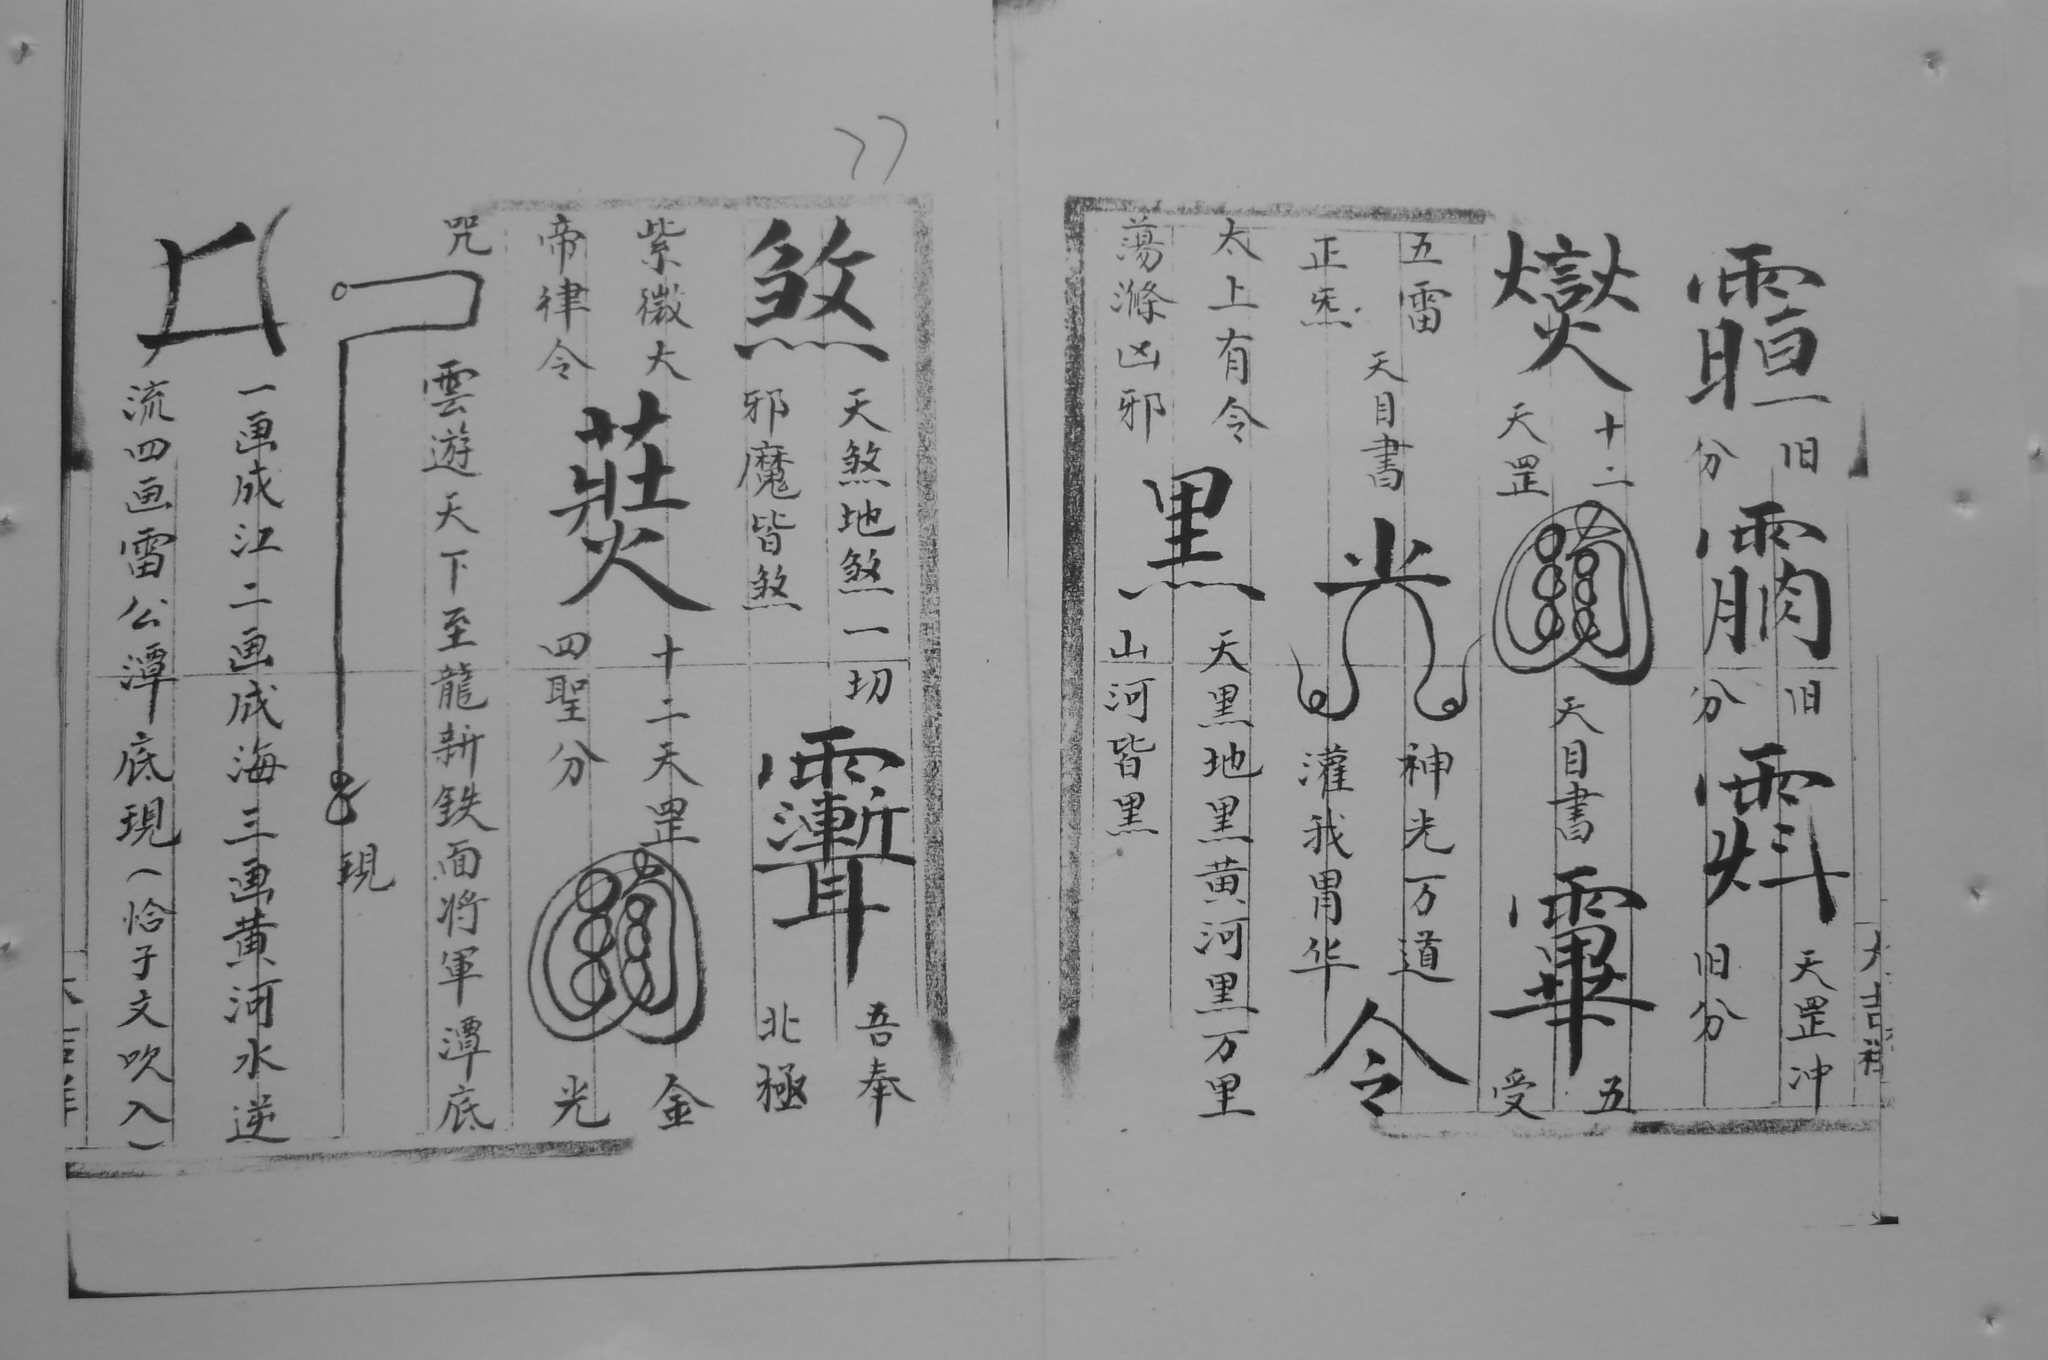 旧
分
旧
分
天罡冲
旧分
大吉祥
十二
天罡
天目書
五
受
五雷
正炁
天目書
神光万道
灌我胃华
令
太上有令
蕩滌凶邪
黑
天黑地黑黄河黑万里
山河皆黑
77
煞
天煞地煞一切
邪魔皆煞
吾奉
北極
紫微大
帝律令
十二天罡
四聖分
金
光
咒
雲遊天下至龍新鉄面将軍潭底
現
一画成江二画成海三画黄河水逆
流四画雷公潭底現(恰子文吹入)